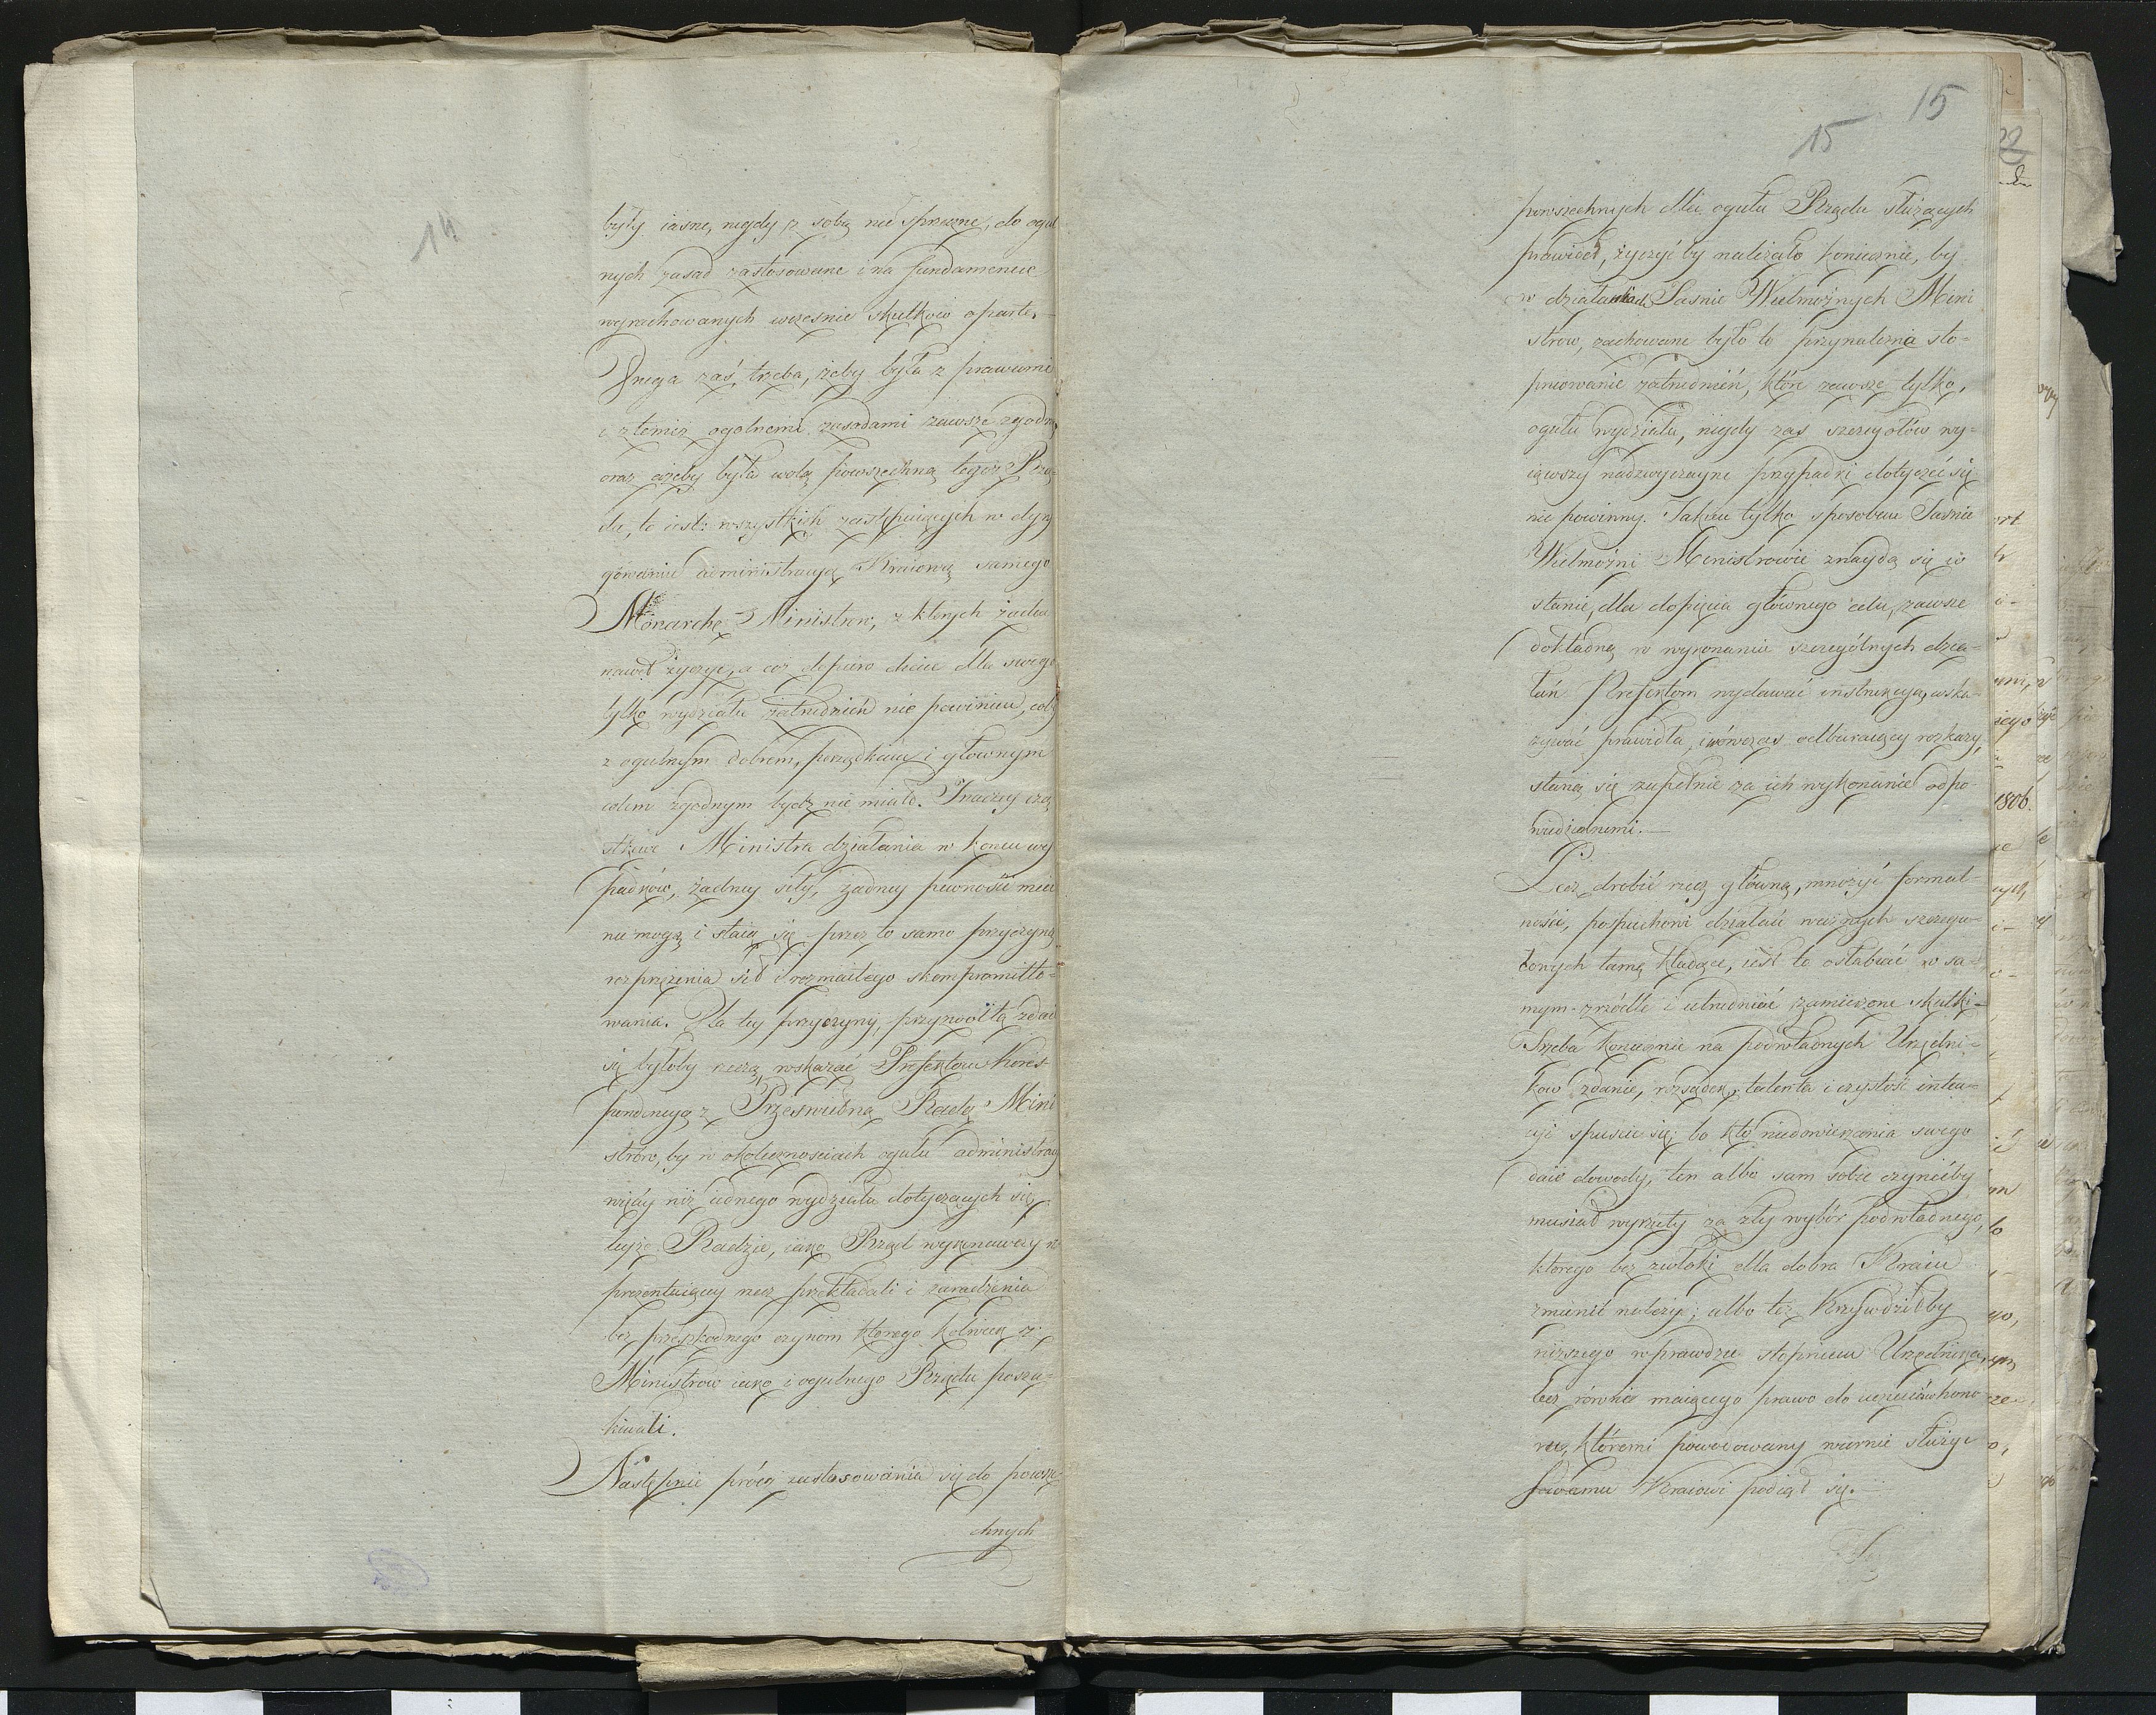 14
były iasne, nigdy z sobą nie sprzeczne, do ogul
nych zasad zastosowane i na fundamencie
wyrachowanych wcześnie skutków oparte.
Druga zaś, trzeba, żeby była z prawami
i z temiż ogolnemi zasadami zawsze zgodną
oraz ażeby była wolą powszechną tegoż Rzą
du, to iest: wszystkich zastępuiących w dyry
gowaniu administracyą Kraiową samego
Monarchę Ministrow, z ktorych żaden
nawet życzyć, a coż dopiero chcieć dla swego
tylko wydziału zatrudnień nie powinien, coby
z ogulnym dobrem, porządkiem i głownym
celem zgodnym bydz nie miało. Inaczey czą
stkowe Ministra działania w koncu wy
padków, żadney siły, żadney pewności mieć
nie mogą i staią się przez to samo przyczyną
rozprzężenia się i rozmaitego skompromitto-
wania. Dla tey przyczyny, przyzwoitą zdaie
się byłoby rzeczą, wskazać Prefektom Kores-
pondencyą z Prześwietną Radą Mini
strów, by w okolicznościach ogułu administracyi
więcey niż iednego wydziału dotyczących się,
teyże Radzie, iako Rząd wykonawczy re
prezentuiącey rzecz przekładali i zaradzenia
bez przeszkodnego czynom ktorego kolwiek z
Ministrow iako i ogulnego Rządu poszu-
kiwali.
Następnie prócz zastosowania się do powsze
chnych
15
15
powszechnych dla ogułu Rządu służących
prawideł, życzyć by należało koniecznie, by
w działaniach Jaśnie Wielmożnych Mini
strow, zachowane było to przynależne sto-
pniowanie zatrudnień, które zawsze tylko,
ogułu wydziału, nigdy zaś szczegołów wy-
iąwszy nadzwyczayne przypadki dotyczeć się
nie powinny. Takim tylko sposobem Jaśnie
Wielmożni Ministrowie znaydą się w
stanie, dla dopięcia głównego celu, zawsze
dokładną w wykonaniu szczególnych dzia-
łań Prefektom wydawać instrukcyą, wska-
zywać prawidła, i wówczas odbieraiący rozkazy,
staną się zupełnie za ich wykonanie odpo-
wiedzialnemi.—
Lecz drobić rzecz główną, mnożyć formal-
ności, pospiechowi działań ważnych szczegu-
łowych tamę kładące, iest to osłabiać w sa-
mym zrzódle i utrudniać zamierzone skutki-
Trzeba koniecznie na podwładnych Urzędni-
kow zdanie, rozsądek, talenta i czystość inten-
cyi spuścić się; bo kto niedowierzania swego
daie dowody, ten albo sam sobie czynićby
musiał wyrzuty za zły wybór podwładnego,
ktorego bez zwłoki dla dobra Kraiu
zmienić należy; albo też krzywdziłby
niższego wprawdzie stopniem Urzędnika,
lecz równie maiącego prawo do uczuciów hono
ru, któremi powodowany wiernie służyć
swemu Kraiowi podiął się.
1806.